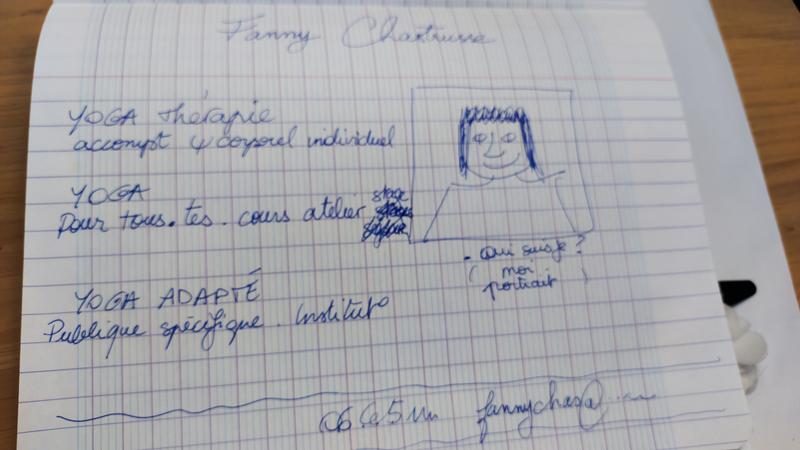 Fanny
YOGA Thérapie
accompt ψ corporel individuel
YOGA
Pour tous.tes. cours atelier stage
• Qui suis je?
( moi )
portrait
YOGA ADAPTÉ
Publique spécifique. Institut°
06 65 fannychas@